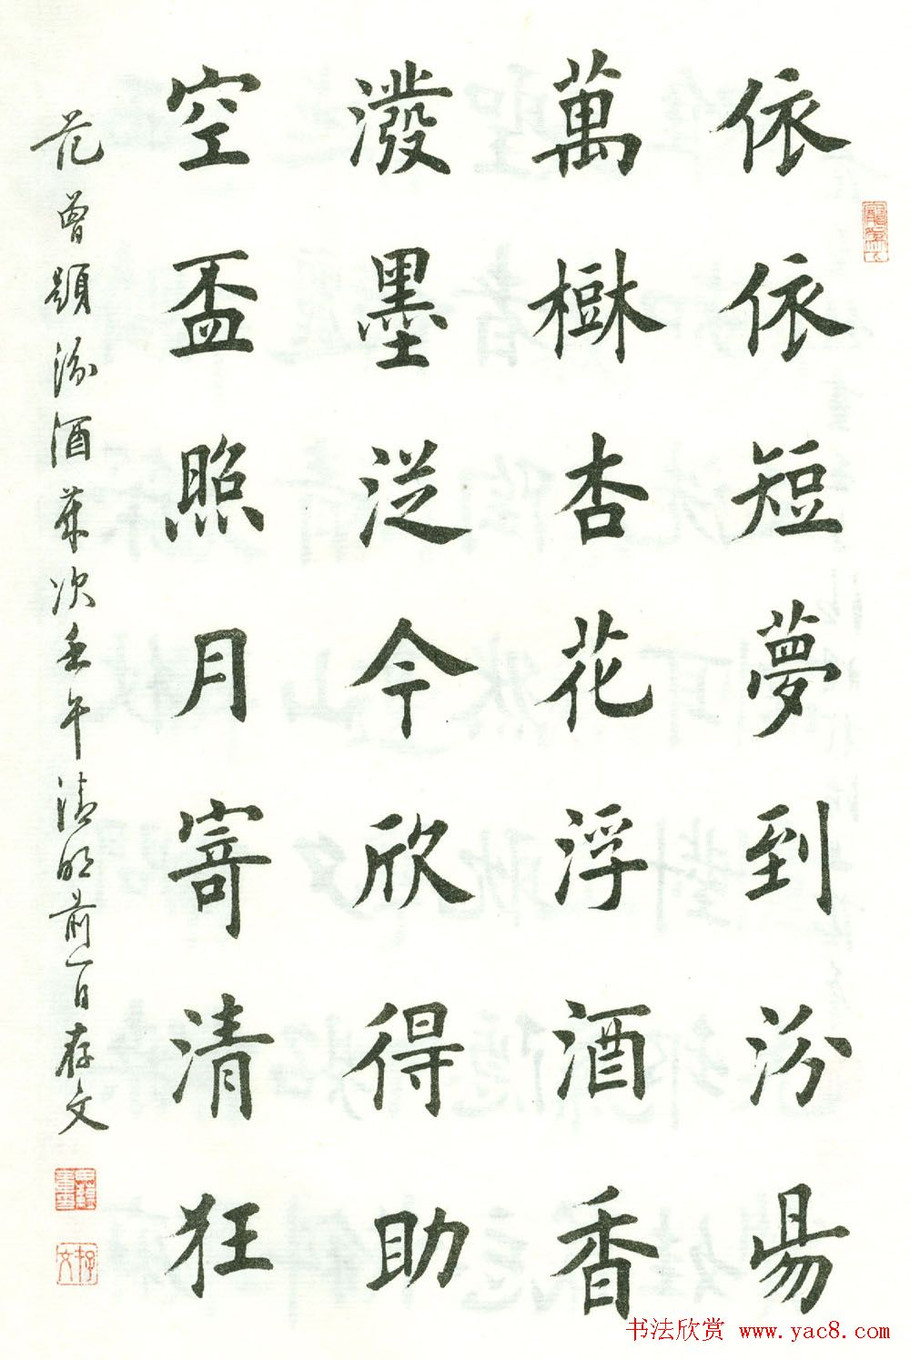 依依短夢到汾昜
萬樹杏花浮酒香
潑墨從今欣得助
空盃照月寄清狂
范曾題汾酒歲次壬午清明前一日存文
存文
书法欣赏 www.yac8.com